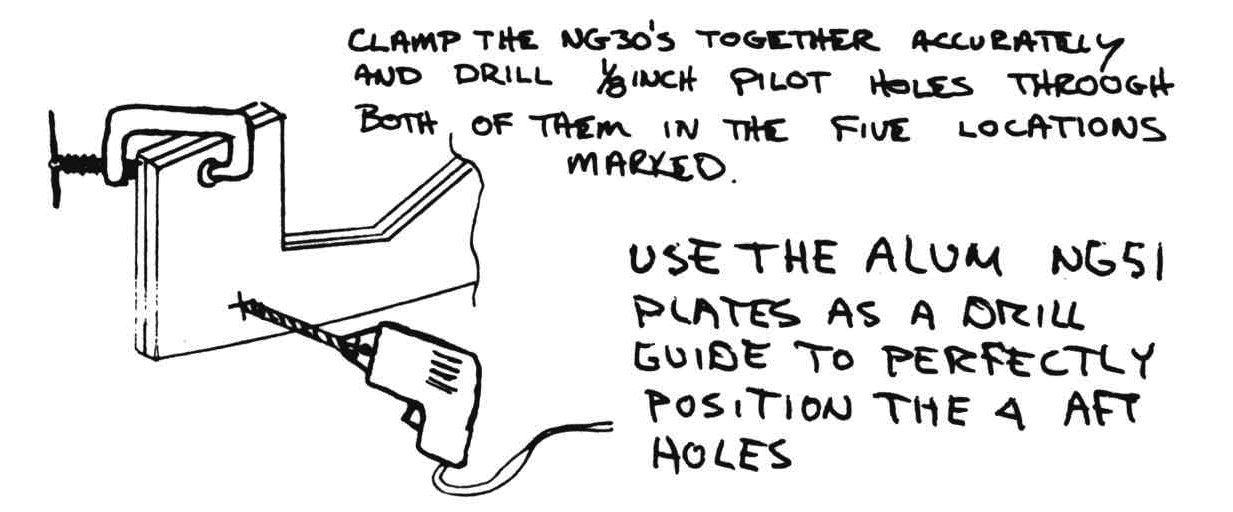 CLAMP THE NG30'S TOGETHER ACCURATELY
AND DRILL 1/8 INCH PILOT HOLES THROOGH
BOTH OF THEM IN THE FIVE LOCATIONS
MARKED.
USE THE ALUM NG51
PLATES AS A DRILL
GUIDE TO PERFECTLY
POSITION THE 4 AFT
HOLES